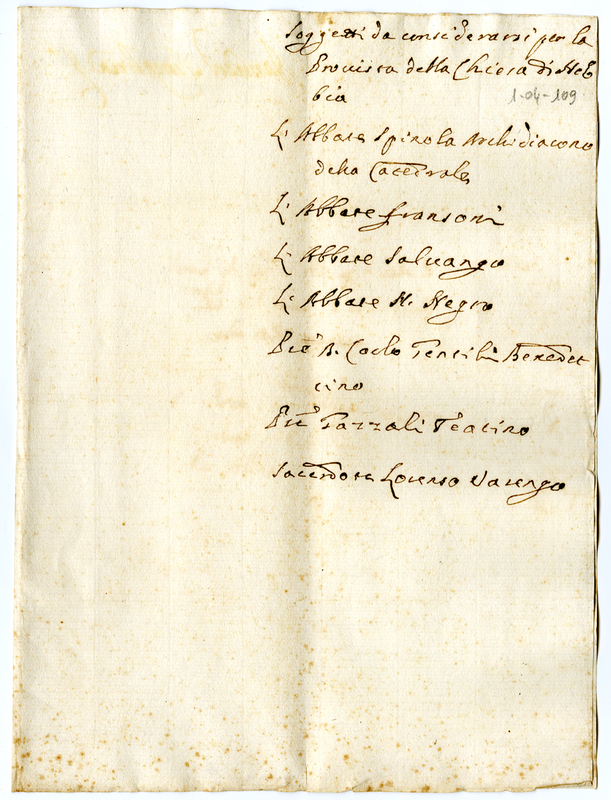 Soggetti da considerarsi per la
Provista della Chiesa di Neb
bia
1-04-109
L' Abbate Spinola Archidiacono
della Catedrale
L' Abbate Fransoni
L' Abbate Saluango
L' Abbate N. Negro
D. Carlo Gentili Benedet
tino
Gazzali Teatino
Sacerdote Lorenso Varengo